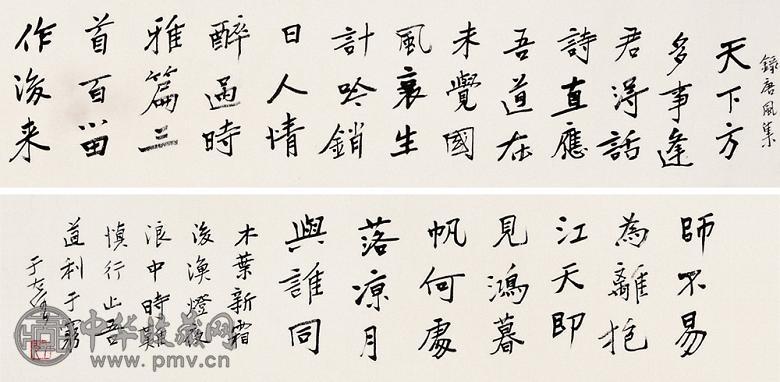 錄唐風集
天下方
多事逢
君得話
詩直應
吾道在
未覺國
風衰生
計吟銷
日人情
醉過時
雅篇三
首百留
作後来
師不易
為離抱
江天即
見鴻暮
帆何處
落涼月
與誰同
木葉新霜
後漁燈夜
浪中時難
慎行止吾
道利于窮
于右任
中华收藏网
www.pmv.cn